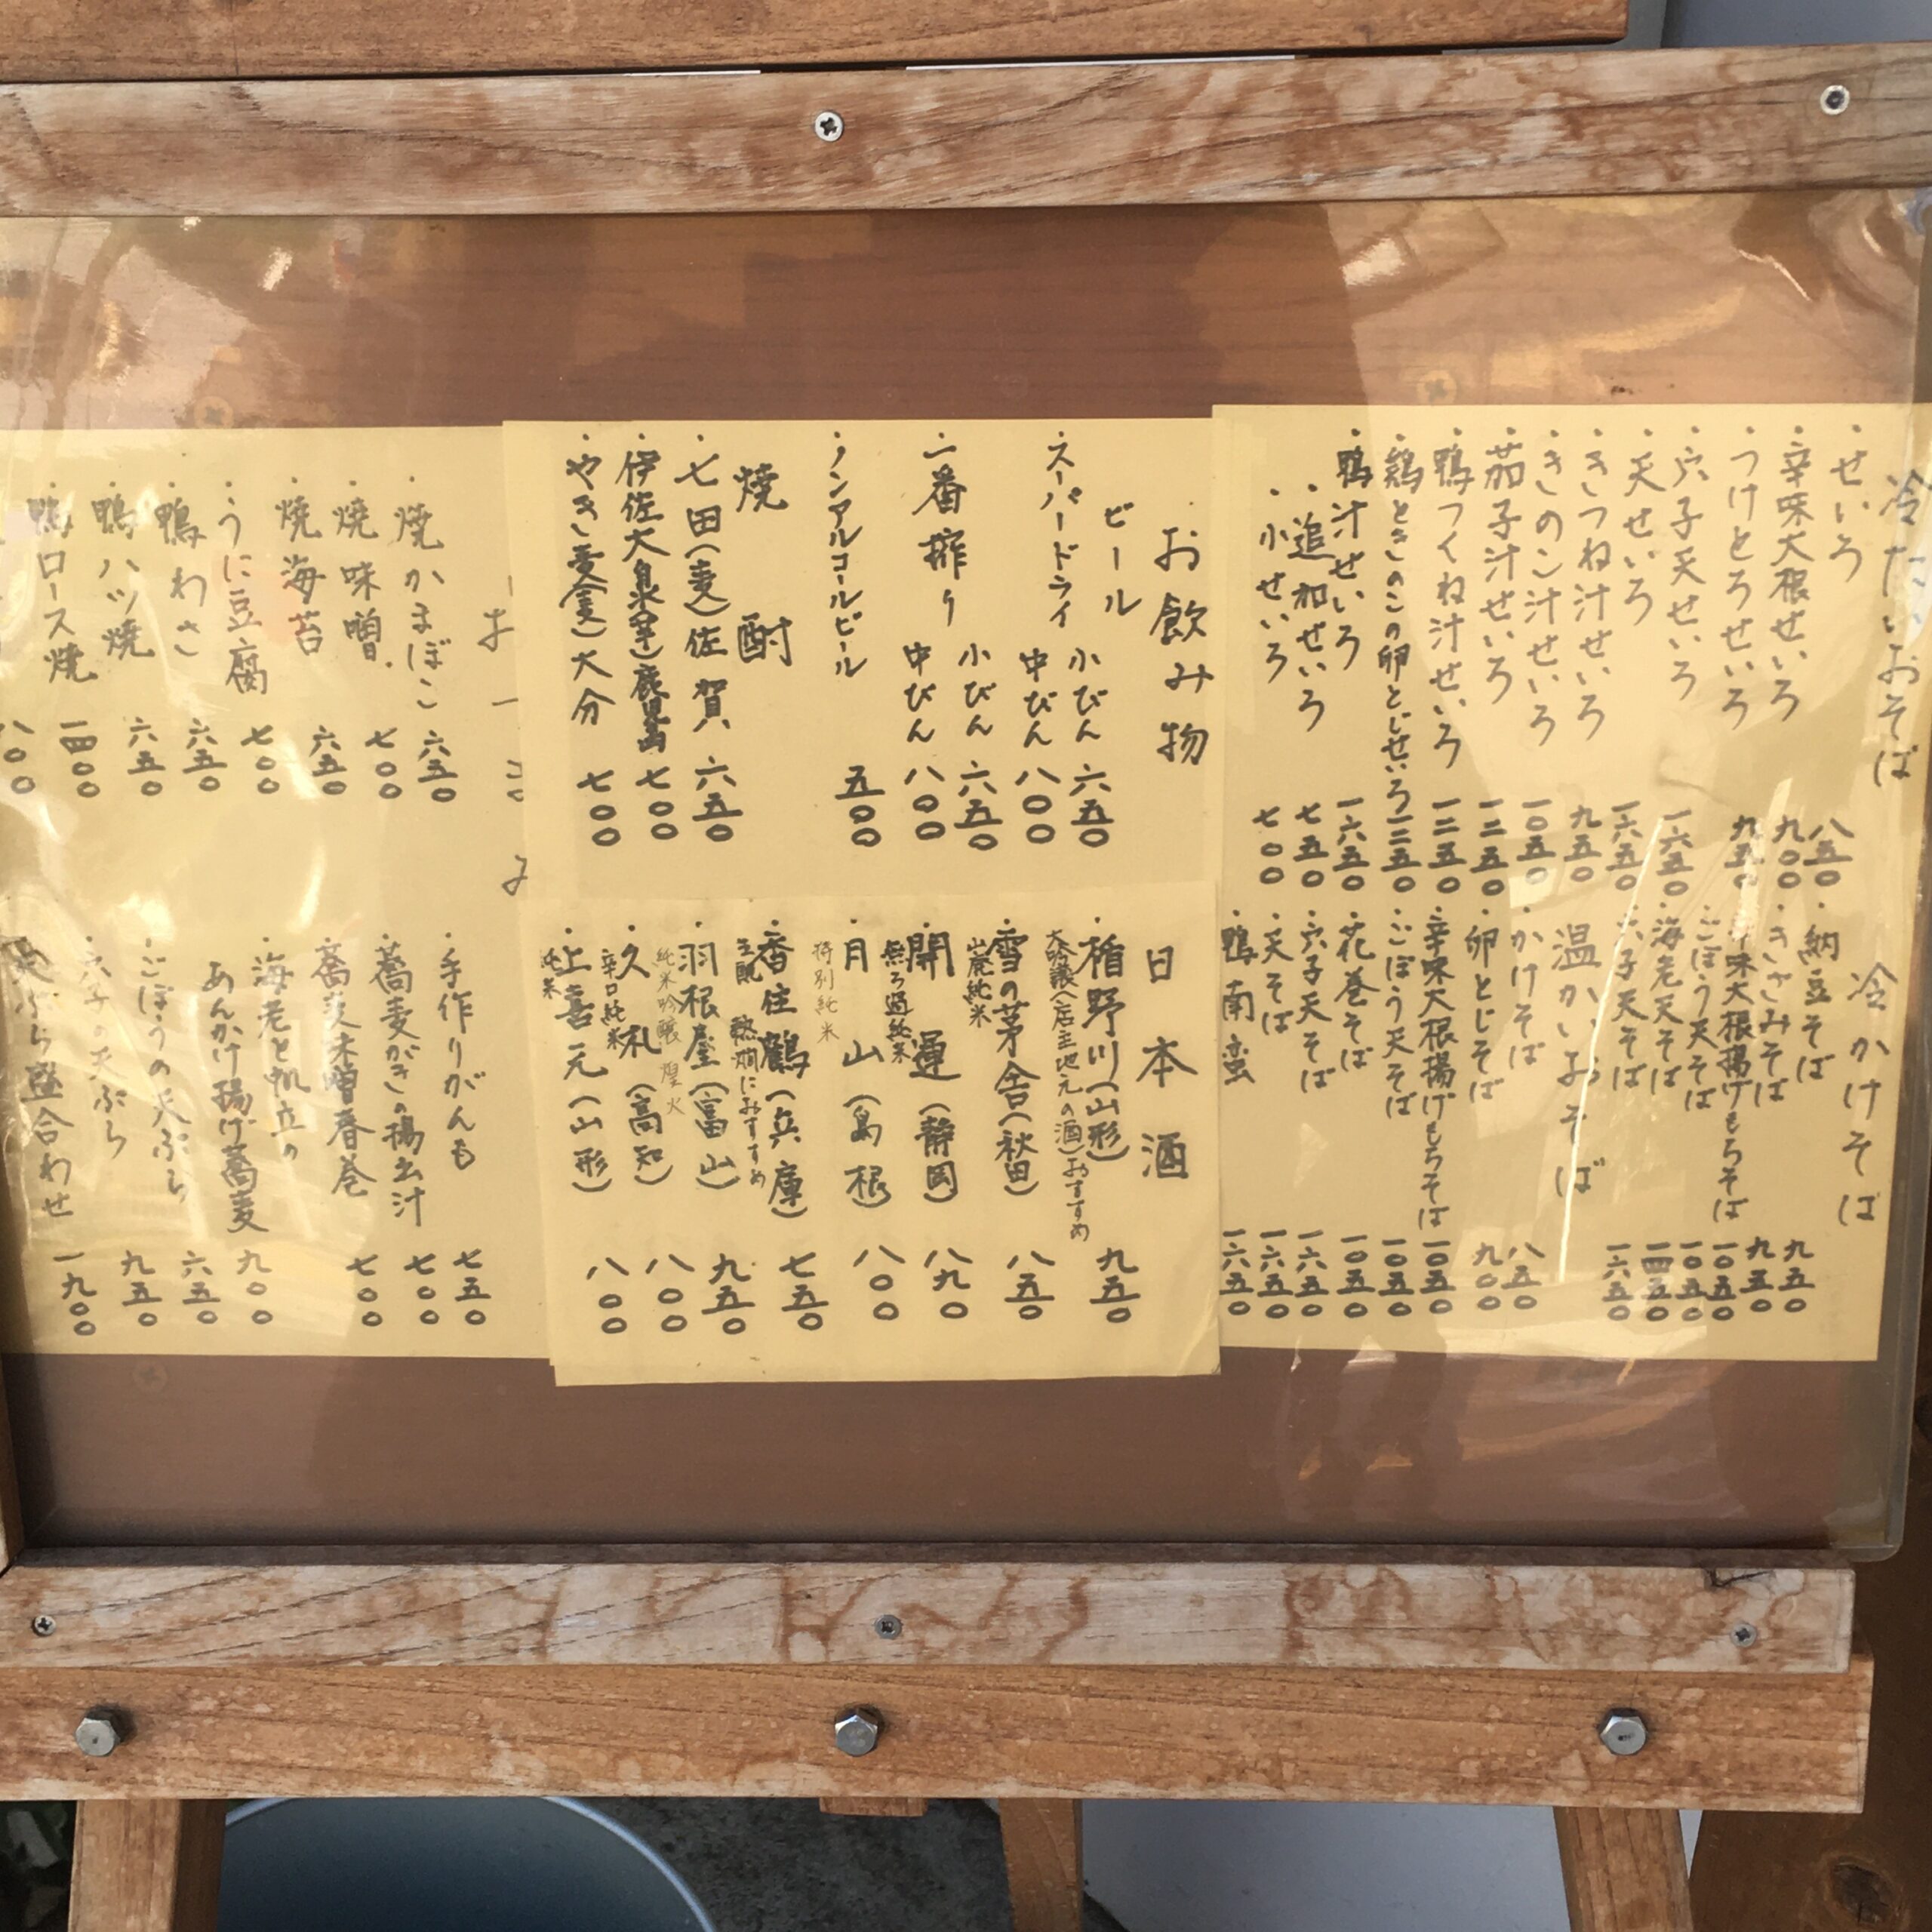 冷たいおそば
・せいろ 八五〇
・辛味大根せいろ 九〇〇
・つけとろせいろ 九五〇
・穴子天せいろ 一六五〇
・天せいろ 一六五〇
・きつね汁せいろ 九五〇
・きのこ汁せいろ 一〇五〇
・茄子汁せいろ 一二五〇
・鴨つくね汁せいろ 一二五〇
・鶏ときのこの卵とじせいろ 一二五〇
・鴨汁せいろ 一六五〇
・追加せいろ 七五〇
・小せいろ 七〇〇
冷かけそば
・納豆そば 九五〇
・きざみそば 九五〇
・辛味大根揚げもちそば 一〇五〇
・ごぼう天そば 一〇五〇
・海老天そば 一四五〇
・穴子天そば 一六五〇
温かいおそば
・かけそば 八五〇
・卵とじそば 九〇〇
・辛味大根揚げもちそば 一〇五〇
・ごぼう天そば 一〇五〇
・花巻そば 一〇五〇
・穴子天そば 一六五〇
・天そば 一六五〇
・鴨南蛮 一六五〇
お飲み物
ビール
・スーパードライ 小びん 六五〇
中びん 八〇〇
・一番搾り 小びん 六五〇
中びん 八〇〇
・ノンアルコールビール 五〇〇
焼酎
・七田(麦)佐賀 六五〇
・伊佐大泉(芋)鹿児島 七〇〇
・やきし麦(麦)大分 七〇〇
日本酒
・楯野川(山形) 九五〇
大吟醸(店主地元の酒)おすすめ
・雪の茅舎(秋田) 八五〇
山廃純米
・開運(静岡) 八九〇
無ろ過純米
・月山(島根) 八〇〇
特別純米
・香住鶴(兵庫) 七五〇
生酛 熱燗におすすめ
・羽根屋(富山) 九五〇
純米吟醸 煌火
・久礼(高知) 八〇〇
辛口純米
・上喜元(山形) 八〇〇
純米
・焼かまぼこ 六五〇
・焼味噌 七〇〇
・焼海苔 六五〇
・うに豆腐 七〇〇
・鴨わさ 六五〇
・鴨ハツ焼 六五〇
・鴨ロース焼 一四〇〇
八〇〇
・手作りがんも 七五〇
・蕎麦がきの揚出汁 七〇〇
・蕎麦味噌春巻 七〇〇
・海老と帆立の
あんかけ揚げ蕎麦 九〇〇
・ごぼうの天ぷら 六五〇
・穴子の天ぷら 九五〇
天ぷら盛合わせ 一九〇〇